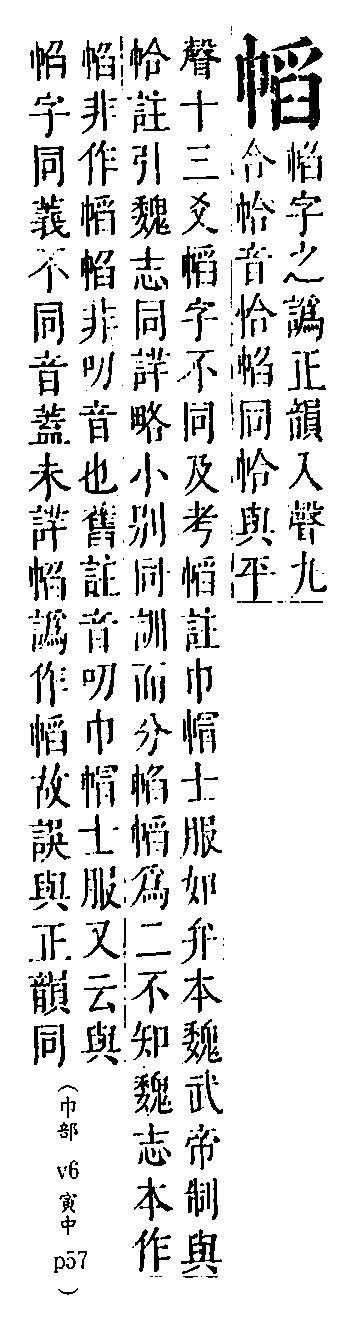 幍
㡊字之譌正韻入聲九
合帢音恰㡊同帢與平
聲十三爻幍字不同及考幍註巾帽士服如弁本魏武帝制與
帢註引魏志同詳略小別同訓而分㡊幍爲二不知魏志本作
㡊非作幍㡊非叨音也舊註音叨巾帽士服又云與
㡊字同義不同音蓋未詳㡊譌作幍故誤與正韻同
(巾部 v6 寅中 p57)